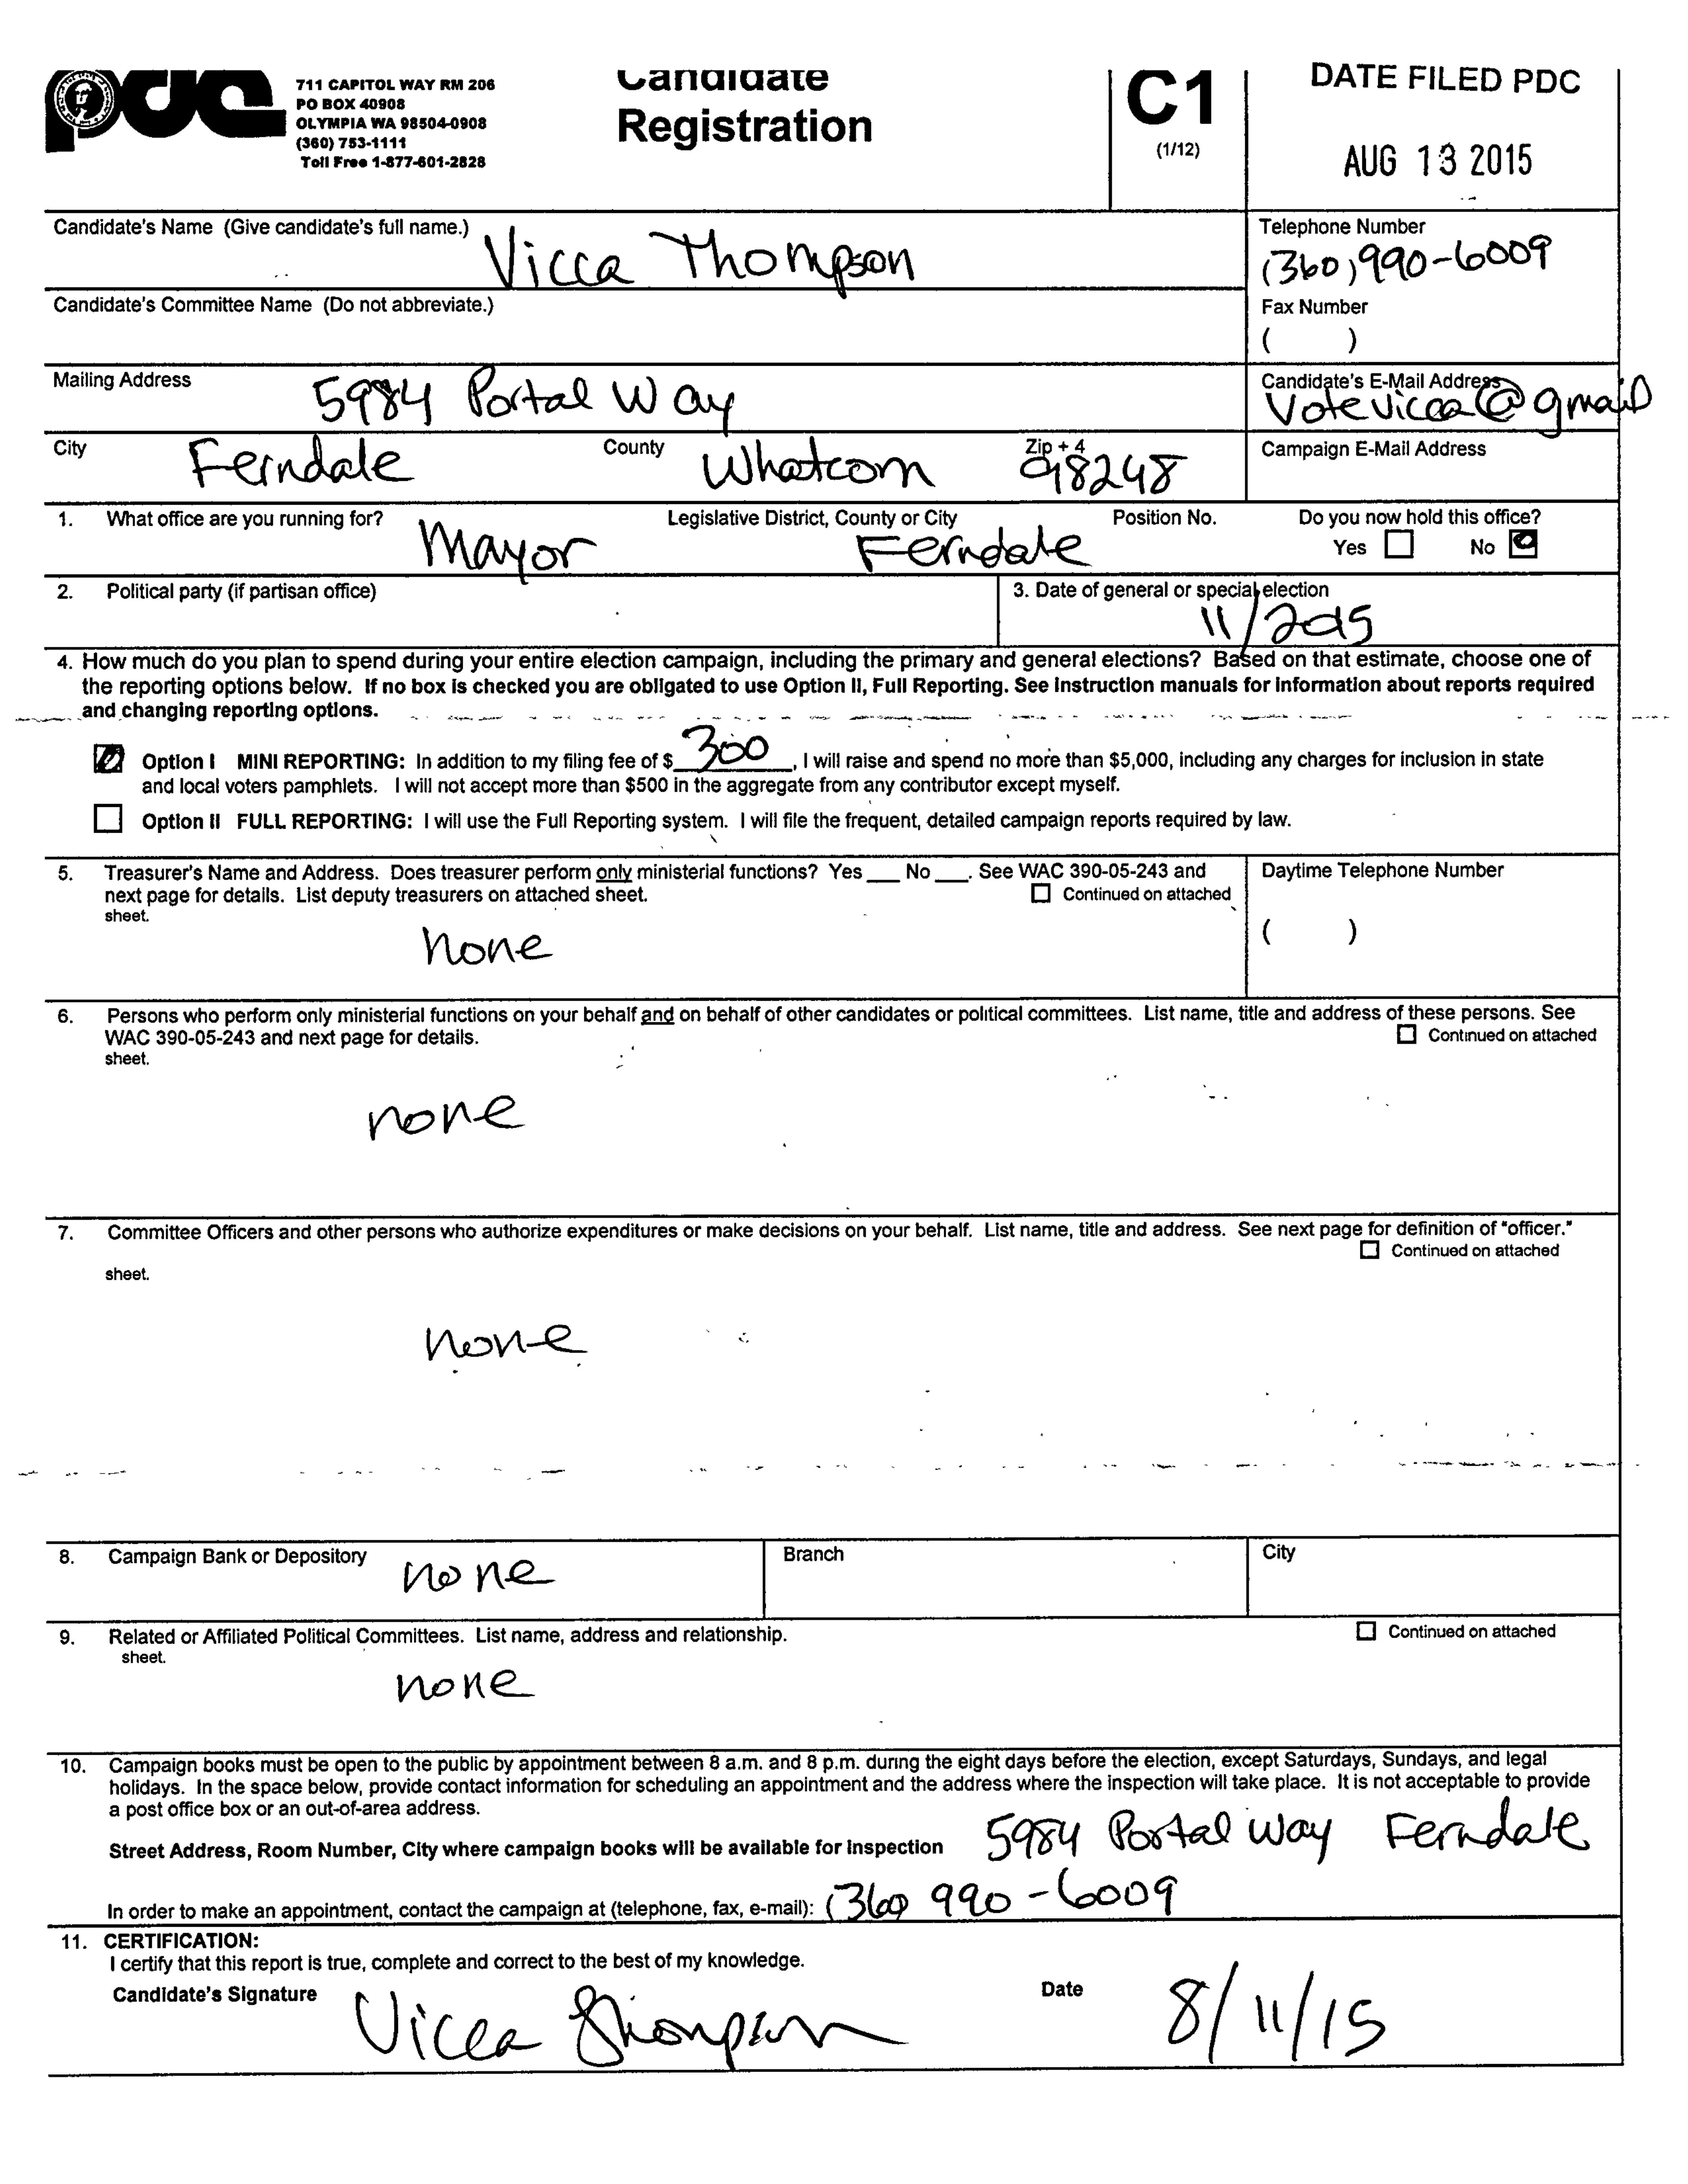 pdc
711 CAPITOL WAY RM 206
PO BOX 40908
OLYMPIA WA 98504-0908
(360) 753-1111
Toll Free 1-877-601-2828
Candidate
Registration
C1
(1/12)
DATE FILED PDC
AUG 13 2015
Candidate's Name (Give candidate's full name.)
Vicca Thompson
Telephone Number
(360) 990-6009
Candidate's Committee Name (Do not abbreviate.)
Fax Number
( )
Mailing Address
5984 Portal Way
Candidate's E-Mail Address
Votevicca@gmail
City
Ferndale
County
Whatcom
Zip + 4
98248
Campaign E-Mail Address
1. What office are you running for?
Mayor
Legislative District, County or City
Ferndale
Position No.
Do you now hold this office?
Yes No
2. Political party (if partisan office)
3. Date of general or special election
11/2015
4. How much do you plan to spend during your entire election campaign, including the primary and general elections? Based on that estimate, choose one of
the reporting options below. If no box is checked you are obligated to use Option II, Full Reporting. See instruction manuals for information about reports required
and changing reporting options.
Option I MINI REPORTING: In addition to my filing fee of $ 300, I will raise and spend no more than $5,000, including any charges for inclusion in state
and local voters pamphlets. I will not accept more than $500 in the aggregate from any contributor except myself.
Option II FULL REPORTING: I will use the Full Reporting system. I will file the frequent, detailed campaign reports required by law.
5. Treasurer's Name and Address. Does treasurer perform only ministerial functions? Yes ___ No ___. See WAC 390-05-243 and
next page for details. List deputy treasurers on attached sheet.
Continued on attached
sheet.
none
Daytime Telephone Number
( )
6. Persons who perform only ministerial functions on your behalf and on behalf of other candidates or political committees. List name, title and address of these persons. See
WAC 390-05-243 and next page for details.
Continued on attached
sheet.
none
7. Committee Officers and other persons who authorize expenditures or make decisions on your behalf. List name, title and address. See next page for definition of "officer."
Continued on attached
sheet.
none
8. Campaign Bank or Depository
none
Branch
City
9. Related or Affiliated Political Committees. List name, address and relationship.
Continued on attached
sheet.
none
10. Campaign books must be open to the public by appointment between 8 a.m. and 8 p.m. during the eight days before the election, except Saturdays, Sundays, and legal
holidays. In the space below, provide contact information for scheduling an appointment and the address where the inspection will take place. It is not acceptable to provide
a post office box or an out-of-area address.
Street Address, Room Number, City where campaign books will be available for inspection
5984 Portal Way Ferndale
In order to make an appointment, contact the campaign at (telephone, fax, e-mail): (360 990-6009
11. CERTIFICATION:
I certify that this report is true, complete and correct to the best of my knowledge.
Candidate's Signature
Vicca Thompson
Date
8/11/15